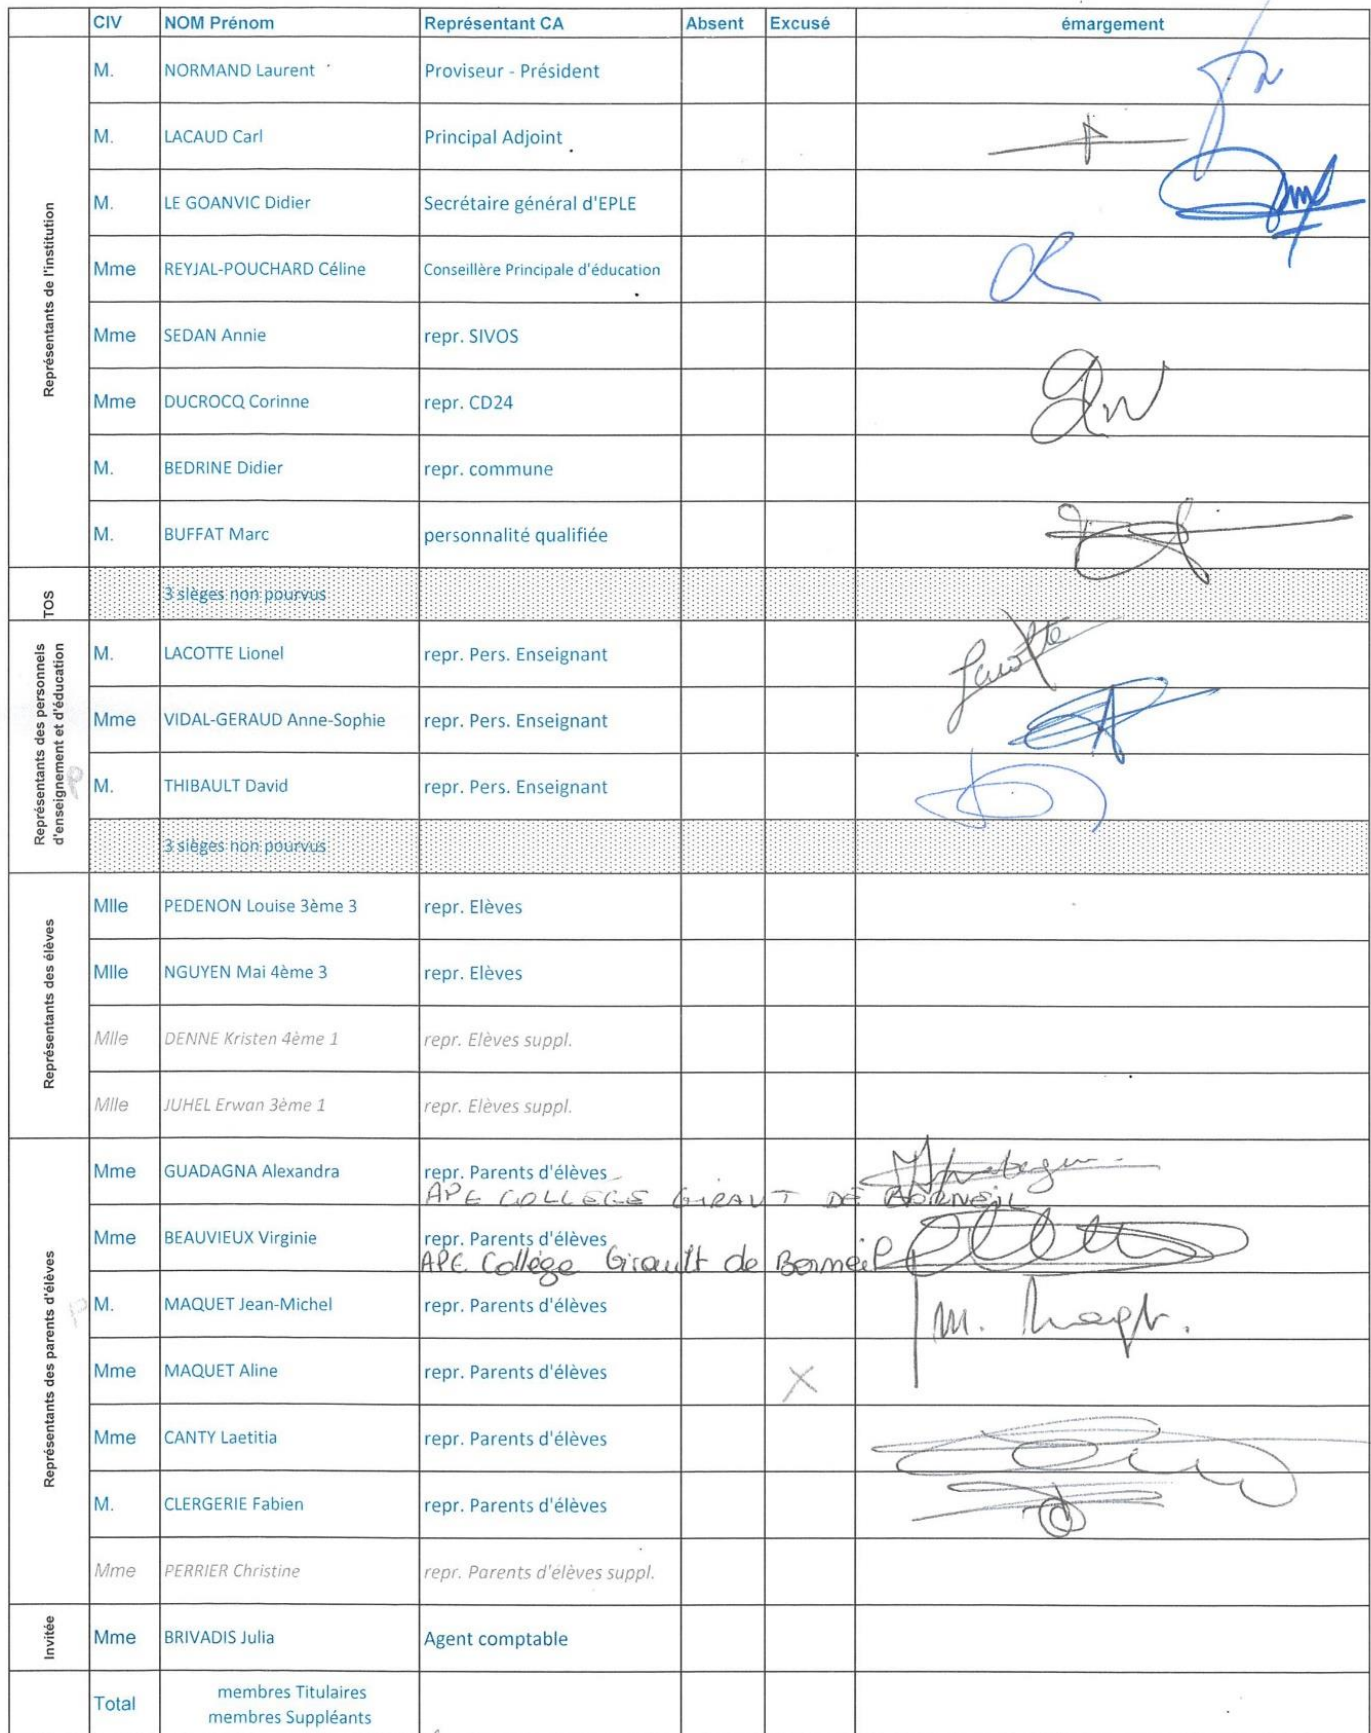 CIV NOM Prénom Représentant CA Absent Excusé émargement
Représentants de l'institution
M. NORMAND Laurent Proviseur - Président
M. LACAUD Carl Principal Adjoint
M. LE GOANVIC Didier Secrétaire général d'EPLE
Mme REYJAL-POUCHARD Céline Conseillère Principale d'éducation
Mme SEDAN Annie repr. SIVOS
Mme DUCROCQ Corinne repr. CD24
M. BEDRINE Didier repr. commune
M. BUFFAT Marc personnalité qualifiée
TOS
3 sièges non pourvus
Représentants des personnels
d'enseignement et d'éducation
M. LACOTTE Lionel repr. Pers. Enseignant Lacotte
Mme VIDAL-GERAUD Anne-Sophie repr. Pers. Enseignant
M. THIBAULT David repr. Pers. Enseignant
3 sièges non pourvus
Représentants des élèves
Mlle PEDENON Louise 3ème 3 repr. Elèves
Mlle NGUYEN Mai 4ème 3 repr. Elèves
Mlle DENNE Kristen 4ème 1 repr. Elèves suppl.
Mlle JUHEL Erwan 3ème 1 repr. Elèves suppl.
Représentants des parents d'élèves
Mme GUADAGNA Alexandra repr. Parents d'élèves
APE COLLEGE GIRAUT DE BORNEIL
Mme BEAUVIEUX Virginie repr. Parents d'élèves
APE Collège Girault de Borneil
M. MAQUET Jean-Michel repr. Parents d'élèves
Mme MAQUET Aline repr. Parents d'élèves X
Mme CANTY Laetitia repr. Parents d'élèves
M. CLERGERIE Fabien repr. Parents d'élèves
Mme PERRIER Christine repr. Parents d'élèves suppl.
Invitée
Mme BRIVADIS Julia Agent comptable
Total membres Titulaires
membres Suppléants